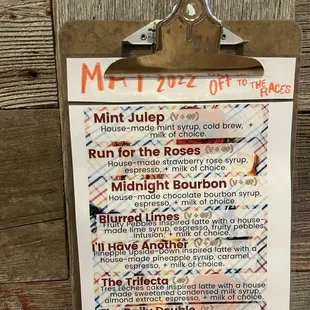 MAY 2022 OFF TO THE RACES
Mint Julep (V + GF)
House-made mint syrup, cold brew, +
milk of choice.
Run for the Roses (V + GF)
House-made strawberry rose syrup,
espresso, + milk of choice.
Midnight Bourbon (V + GF)
House-made chocolate bourbon syrup,
espresso, + milk of choice.
Blurred Limes (V + GF)
Fruity Pebbles inspired latte with a house-
made lime syrup, espresso, fruity pebbles
infusion, + milk of choice.
I'll Have Another (V + GF)
Pineapple upside-down inspired latte with a
house-made pineapple syrup, caramel,
espresso, + milk of choice.
The Trifecta (GF)
Tres Leches cake inspired latte with a house
made sweetened condensed milk syrup,
almond extract, espresso, + milk of choice.
The Daily Double